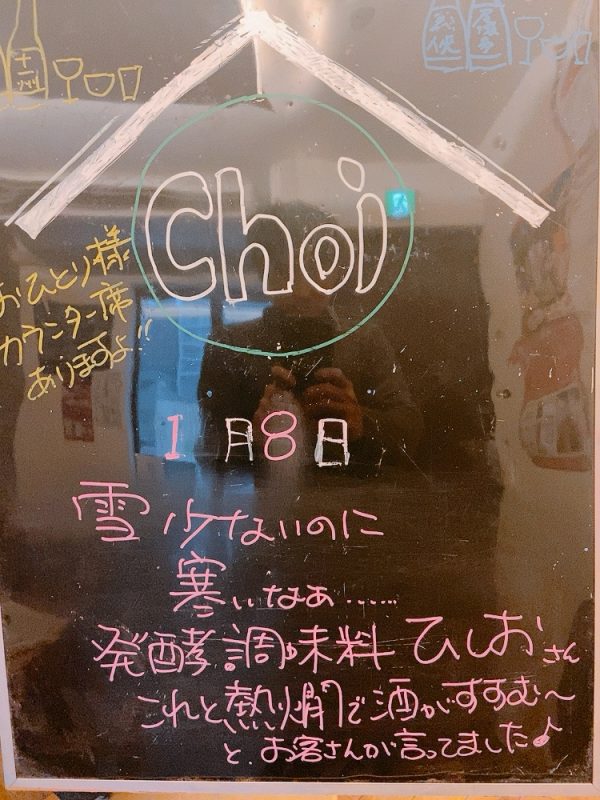 十一州
Choi
おひとり様
カウンター席
ありますよ!!
1月8日
雪少ないのに
寒いなあ……
発酵調味料ひしおさん
これと熱燗で酒がすすむ〜
と、お客さんが言ってました♪